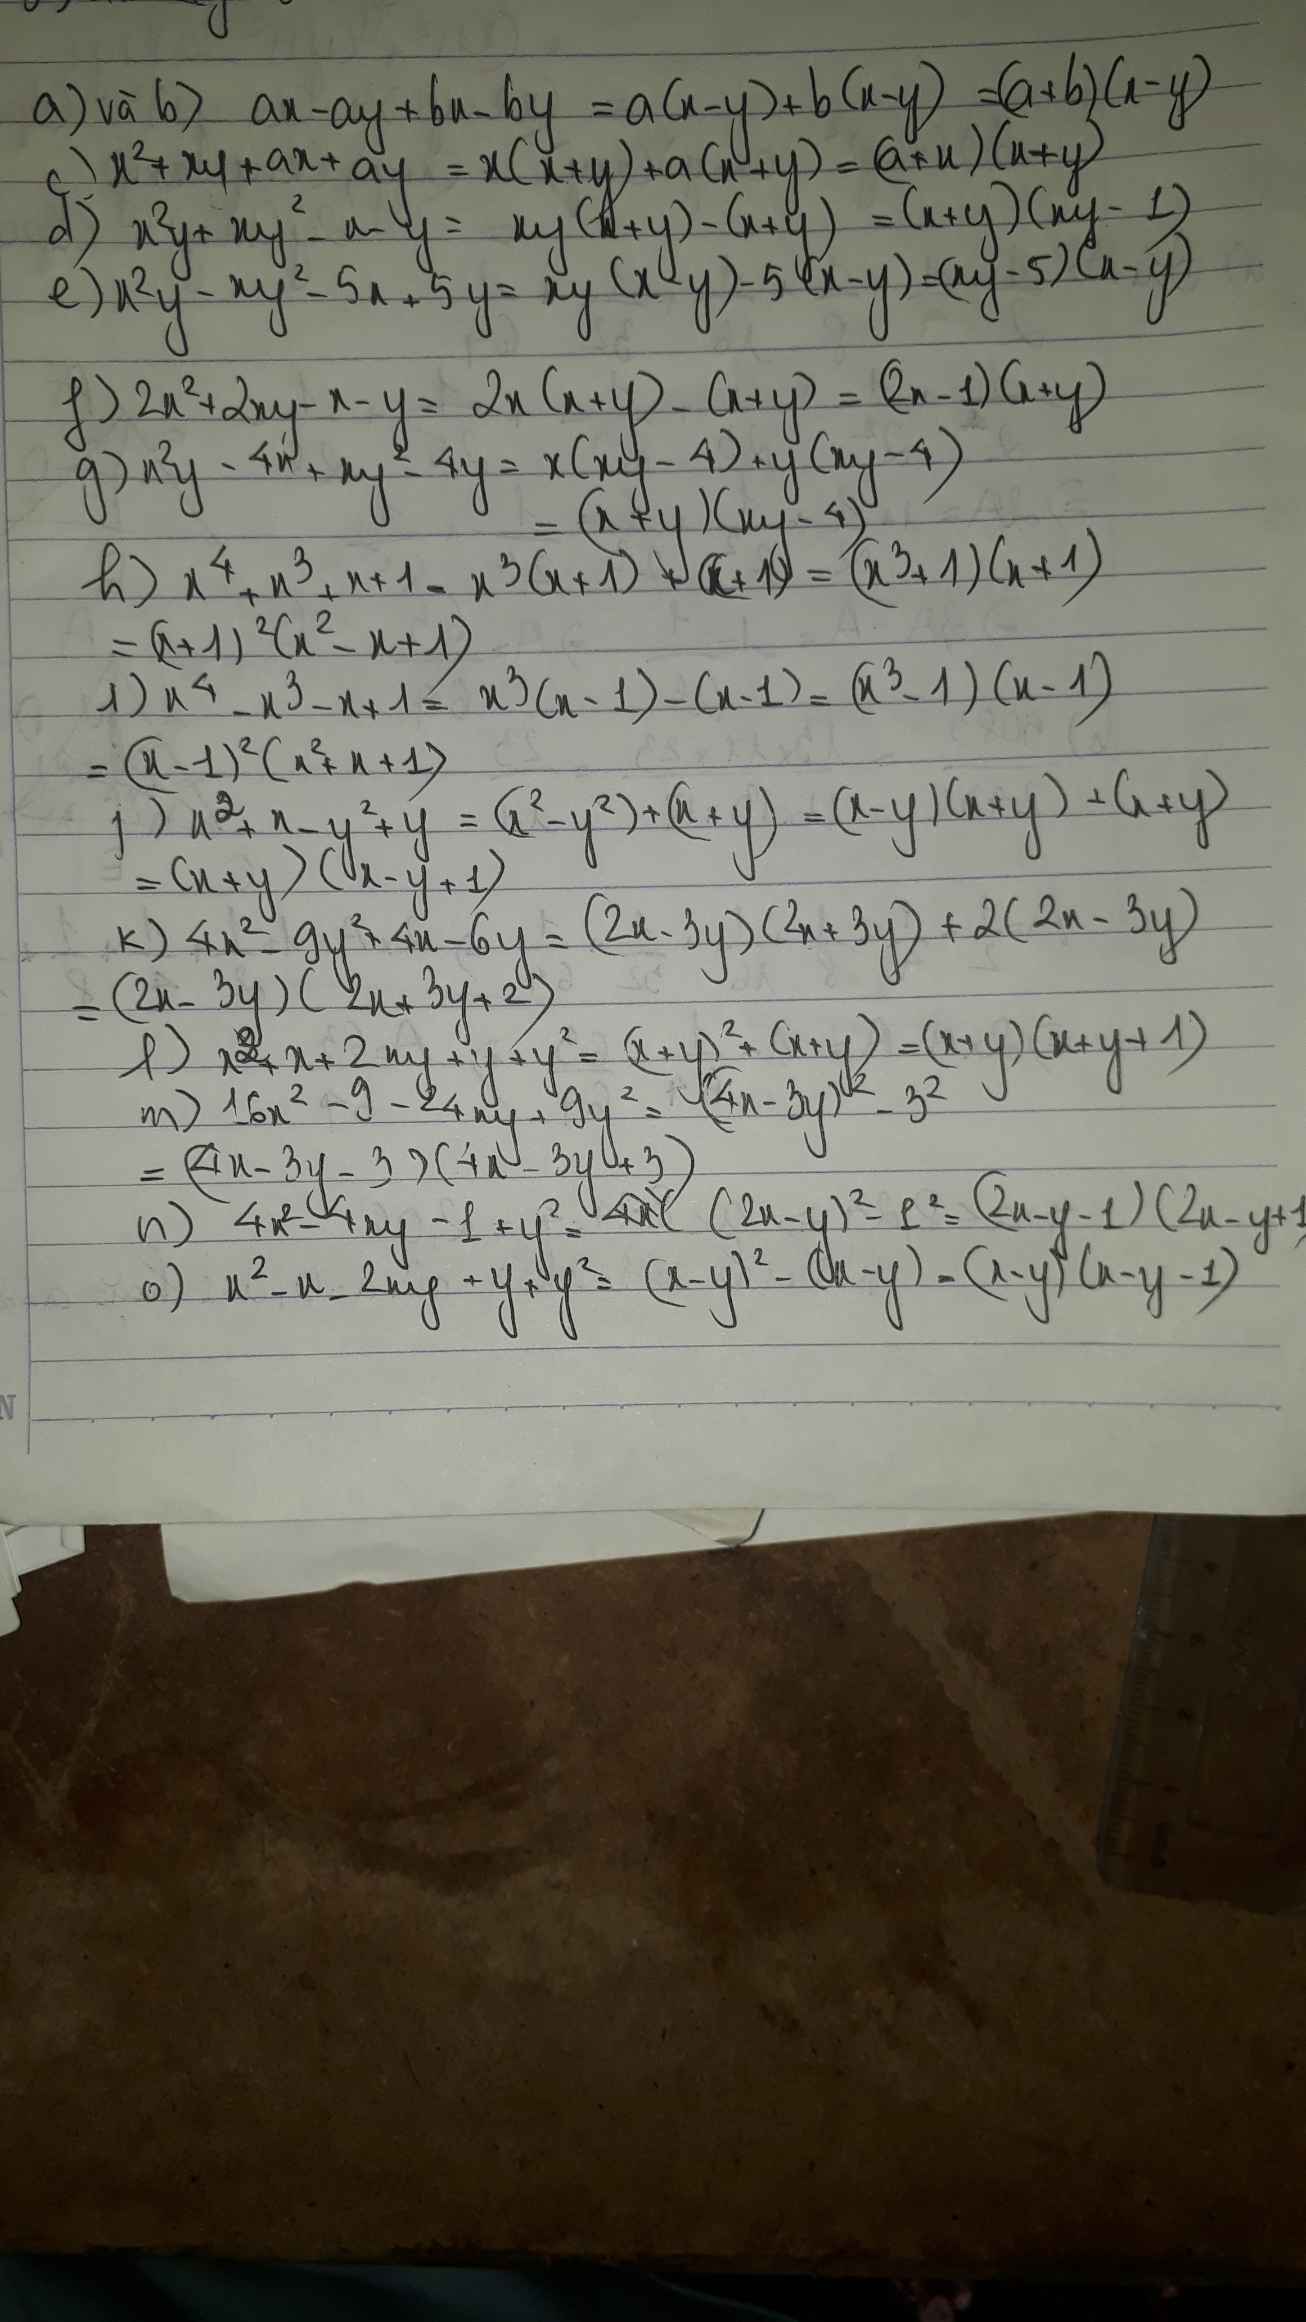 a) và b) ax-ay+bx-by = a(x-y)+b(x-y) =(a+b)(x-y)
c) x²+xy+ax+ay = x(x+y)+a(x+y) = (a+x)(x+y)
d) x²y+xy²-x-y = xy(x+y)-(x+y) =(x+y)(xy-1)
e) x²y-xy²-5x+5y= xy(x-y)-5(x-y)=(xy-5)(x-y)
f) 2x²+2xy-x-y = 2x(x+y)-(x+y) = (2x-1)(x+y)
g) x²y-4x+xy²-4y = x(xy-4)+y(xy-4)
= (x+y)(xy-4)
h) x⁴+x³+x+1= x³(x+1)+(x+1) = (x³+1)(x+1)
= (x+1)²(x²-x+1)
i) x⁴-x³-x+1= x³(x-1)-(x-1)=(x³-1)(x-1)
= (x-1)²(x²+x+1)
j) x²+x-y²+y = (x²-y²)+(x+y) = (x-y)(x+y)+(x+y)
= (x+y)(x-y+1)
k) 4x²-9y²+4x-6y=(2x-3y)(2x+3y)+2(2x-3y)
=(2x-3y)(2x+3y+2)
l) x²+x+2xy+y+y²= (x+y)²+(x+y) =(x+y)(x+y+1)
m) 16x²-9-24xy+9y²= (4x-3y)²-3²
= (4x-3y-3)(4x-3y+3)
n) 4x²-4xy-1+y²= (2x-y)²-1²= (2x-y-1)(2x-y+1
o) x²-x-2xy+y+y²= (x-y)²-(x-y)=(x-y)(x-y-1)
N